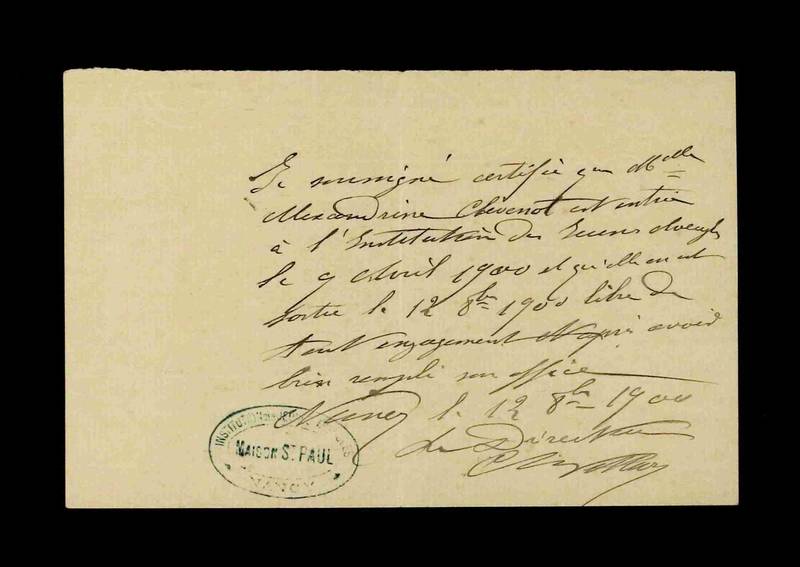 Je soussigné certifie que Melle
Alexandrine Chevenot est entrée
à l'Institution des Jeunes Aveugles
le 9 Avril 1900 et qu'elle en est
sortie le 12 8bre 1900 libre de
tout engagement et après avoir
bien rempli son office
Nancy le 12 8bre 1900
Le Directeur
INSTITUTION DES JEUNES AVEUGLES
MAISON ST. PAUL
NANCY